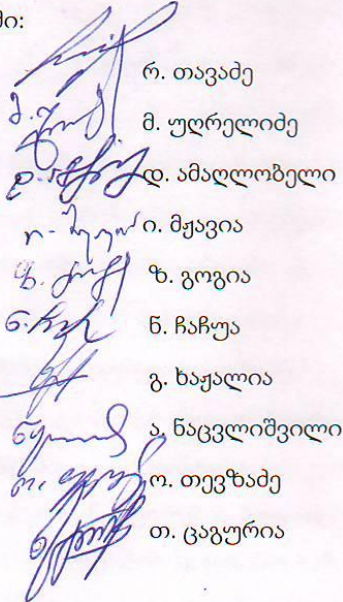 მი:
რ. თავაძე
მ. უღრელიძე
დ. ამაღლობელი
ი. მჟავია
ზ. გოგია
ნ. ჩაჩუა
გ. ხაჟალია
ა. ნაცვლიშვილი
ო. თევზაძე
თ. ცაგურია